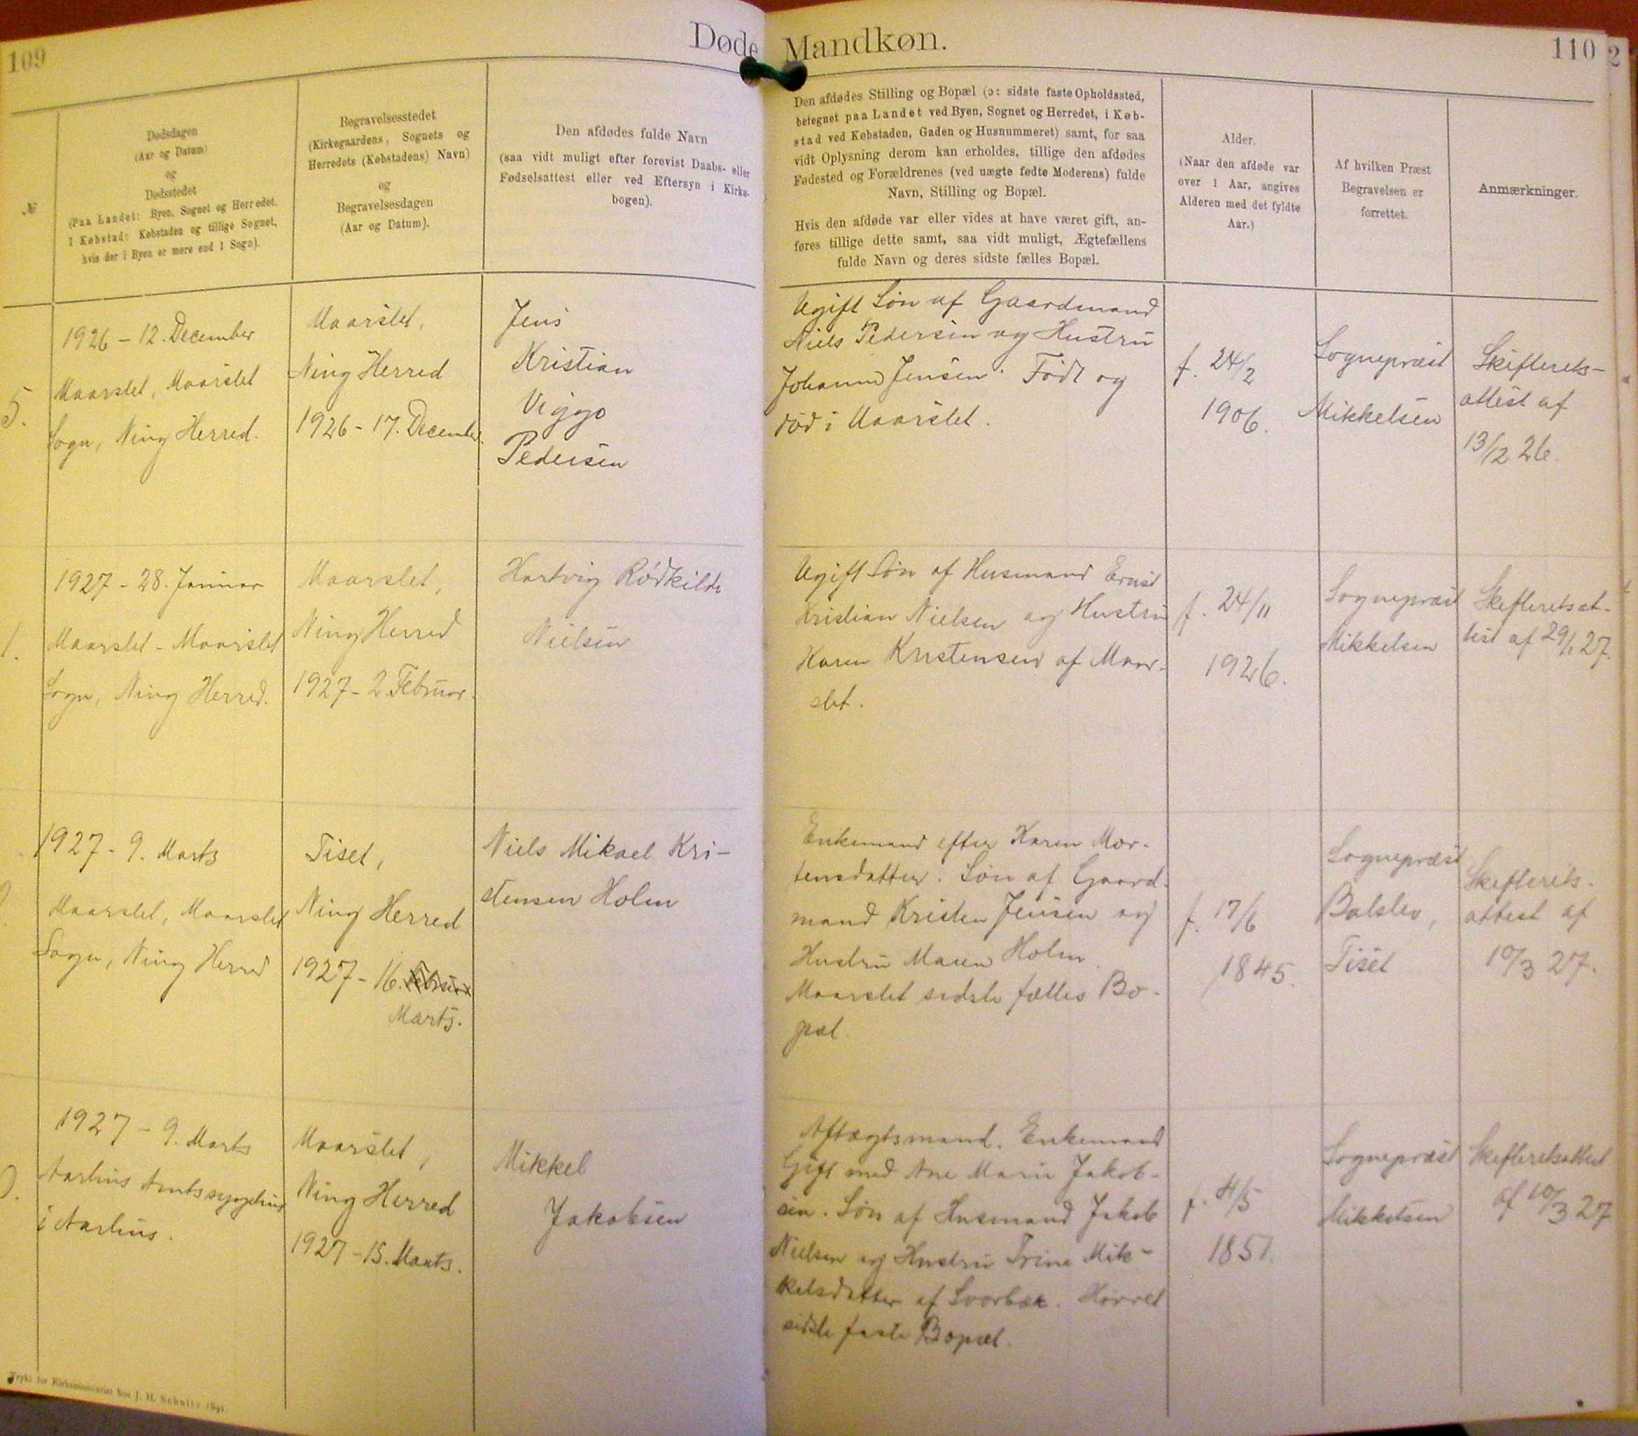 109
Døde
Mandkøn.
110
2
№
Dødsdagen
(Aar og Datum)
og
Dødsstedet
(Paa Landet: Byen, Sognet og Herredet.
I Købstad: Købstaden og tillige Sognet,
hvis der i Byen er mere end 1 Sogn).
Begravelsesstedet
(Kirkegaardens, Sognets og
Herredets (Købstadens) Navn)
og
Begravelsesdagen
(Aar og Datum).
Den afdødes fulde Navn
(saa vidt muligt efter forevist Daabs- eller
Fødselsattest eller ved Eftersyn i Kirke-
bogen).
Den afdødes Stilling og Bopæl (ɔ: sidste faste Opholdssted,
betegnet paa Landet ved Byen, Sognet og Herredet, i Køb-
stad ved Købstaden, Gaden og Husnummeret) samt, for saa
vidt Oplysning derom kan erholdes, tillige den afdødes
Fødested og Forældrenes (ved uægte fødte Moderens) fulde
Navn, Stilling og Bopæl.
Hvis den afdøde var eller vides at have været gift, an-
føres tillige dette samt, saa vidt muligt, Ægtefællens
fulde Navn og deres sidste fælles Bopæl.
Alder.
(Naar den afdøde var
over 1 Aar, angives
Alderen med det fyldte
Aar.)
Af hvilken Præst
Begravelsen er
forrettet.
Anmærkninger.
5.
1926 - 12. December
Maarslet, Maarslet
Sogn, Ning Herred.
Maarslet,
Ning Herred
1926 - 17. December
Jens
Kristian
Viggo
Pedersen
Ugift Søn af Gaardmand
Niels Pedersen og Hustru
Johanne Jensen. Født og
død i Maarslet.
f. 24/2
1906.
Sognepræst
Mikkelsen
Skifterets-
attest af
13/12 26.
1.
1927 - 28. Januar
Maarslet - Maarslet
Sogn, Ning Herred.
Maarslet,
Ning Herred
1927 - 2. Februar.
Hartvig Rødkilde
Nielsen
Ugift Søn af Husmand Ernst
Kristian Nielsen og Hustru
Karen Kristensen af Maar-
slet.
f. 24/11
1926.
Sognepræst
Mikkelsen
Skifteretsat-
test af 29/1 27.
1927 - 9. Marts
Maarslet, Maarslet
Sogn, Ning Herred
Tiset,
Ning Herred
1927 - 16.
Marts.
Niels Mikael Kri-
stensen Holm
Enkemand efter Karen Mor-
tensdatter. Søn af Gaard-
mand Kristen Jensen og
Hustru Maren Holm.
Maarslet sidste fælles Bo-
pæl.
f. 17/6
1845.
Sognepræst
Balslev,
Tiset
Skifterets-
attest af
10/3 27.
1927 - 9. Marts
Aarhus Amtssygehus
i Aarhus.
Maarslet,
Ning Herred
1927 - 15. Marts.
Mikkel
Jakobsen
Aftægtsmand. Enkemand
Gift med Ane Marie Jakob-
sen. Søn af Husmand Jakob
Nielsen og Hustru Trine Mik-
kelsdatter af Svorbæk. Hørret
sidste faste Bopæl.
f. 4/5
1851.
Sognepræst
Mikkelsen
Skifteretsattest
af 10/3 27
Trykt for Kirkeministeriet hos J. H. Schultz